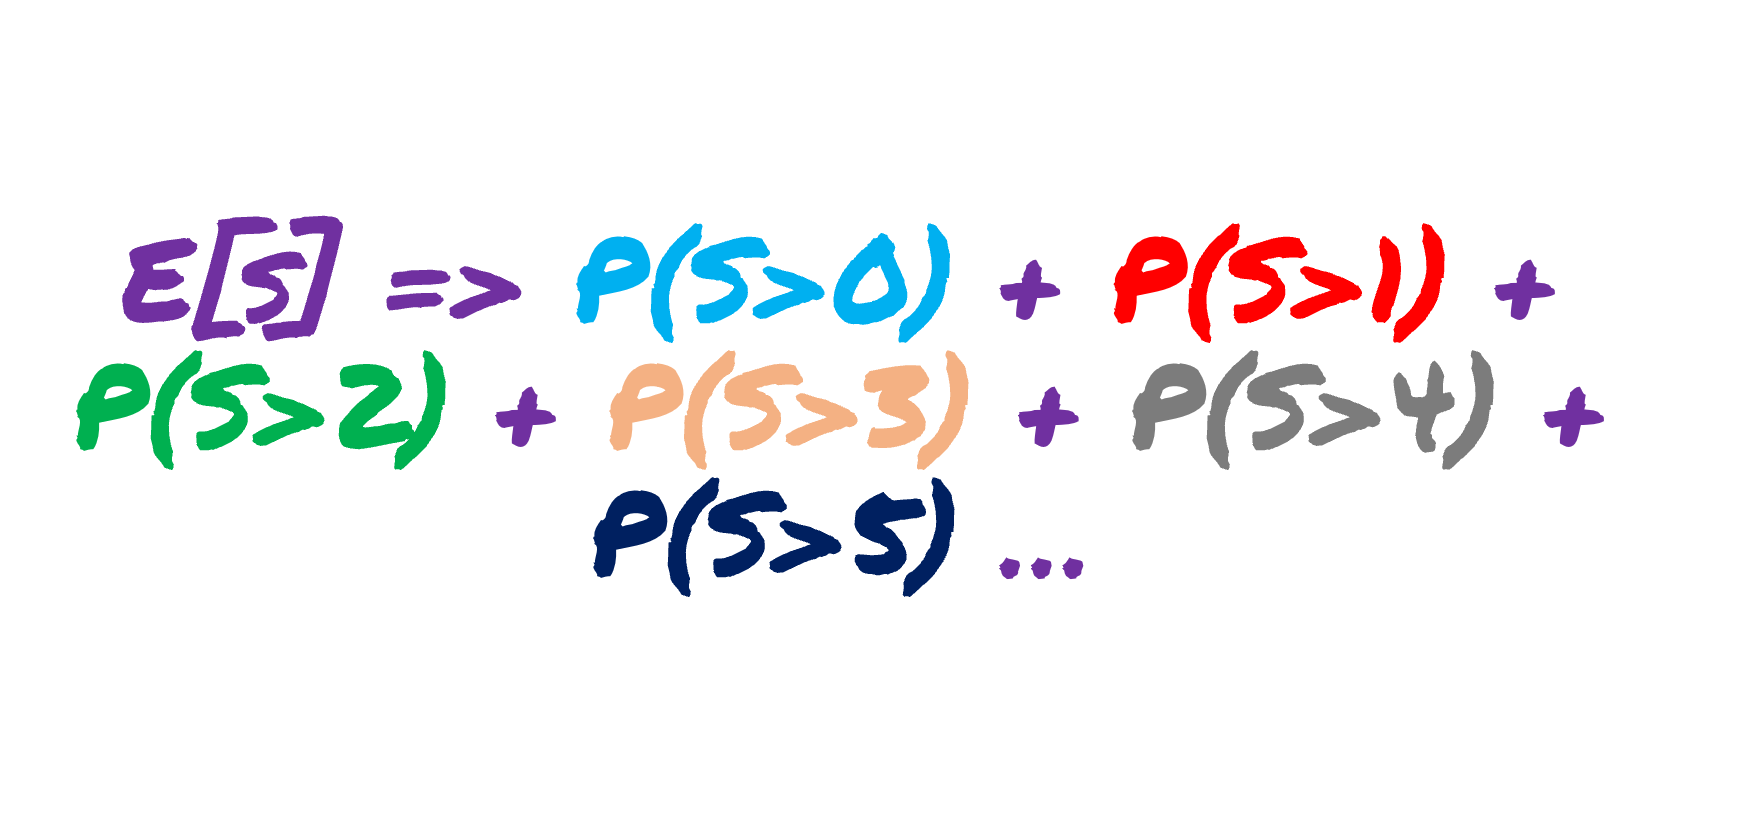 E[S] => P(S>0) + P(S>1) +
P(S>2) + P(S>3) + P(S>4) +
P(S>5) ...